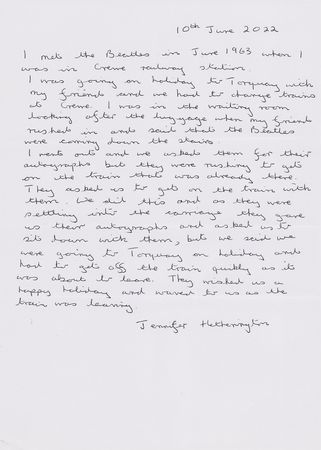 10th June 2022
I met the Beatles in June 1963 when I
was in Crewe railway station.
I was going on holiday to Torquay with
my friends and we had to change trains
at Crewe. I was in the waiting room
looking after the luggage when my friends
rushed in and said that the Beatles
were coming down the stairs.
I went out and we asked them for their
autographs but they were rushing to get
on the train that was already there.
They asked us to get on the train with
them. We did this and as they were
settling into the carriage they gave
us their autographs and asked us to
sit down with them, but we said we
were going to Torquay on holiday and
had to get off the train quickly as it
was about to leave. They wished us a
happy holiday and waved to us as the
train was leaving
Jennifer Hetherington